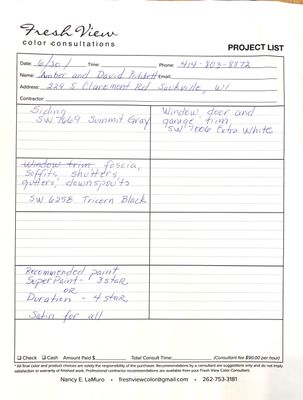 Fresh View
color consultations
PROJECT LIST
Date: 6/30/ Time: Phone: 414-803-8872
Name: Amber and David Email:
Address: 229 S Claremont Rd Saukville, WI
Contractor:
Siding
SW 7669 Summit Gray
Window, door and
garage trim
SW 7006 Extra White
Window trim, fascia,
soffits, shutters
gutters, downspouts
SW 6258 Tricorn Black
Recommended paint
SuperPaint - 3 star
OR
Duration - 4 star
Satin for all
Check Cash Amount Paid $ Total Consult Time: (Consultant fee $90.00 per hour)
* All final color and product choices are solely the responsibility of the purchaser. Recommendations by a consultant are suggestions only and do not imply
satisfaction or warranty of finished work. Professional contractor recommendations are available from your Fresh View Color Consultant.
Nancy E. LaMuro • freshviewcolor@gmail.com • 262-753-3181